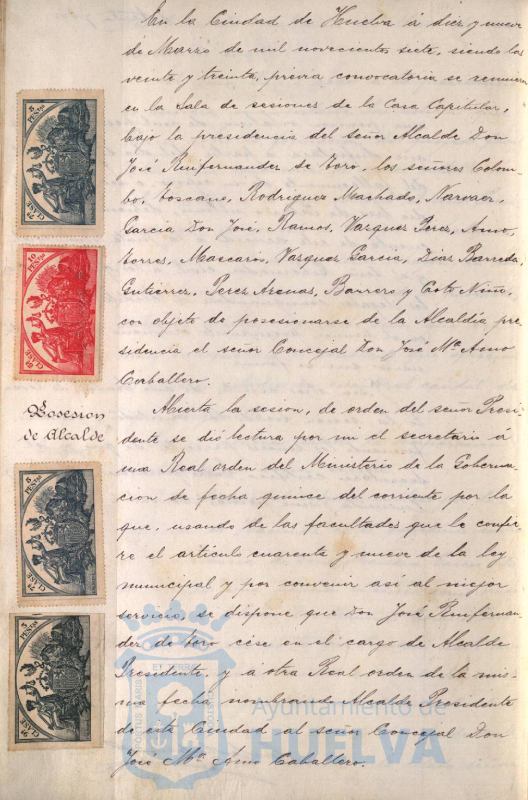 En la Ciudad de Huelva á diez y nueve
de Marzo de mil novecientos siete, siendo las
veinte y treinta, previa convocatoria se reunieron
en la Sala de sesiones de la Casa Capitular,
bajo la presidencia del señor Alcalde Don
José Ruifernandez de Toro, los señores Colom-
bo, Toscano, Rodriguez Machado, Narvaez,
García Don José, Ramos, Vazquez Perez, Amo,
Torres, Mascaró, Vazquez García, Diaz Barreda,
Gutierrez, Perez Arenas, Barrero y Coto Niño,
con objeto de posesionarse de la Alcaldía pre-
sidencia el señor Concejal Don José Mª Amo
Corballero.
Posesion
de Alcalde
Abierta la sesion, de orden del señor Presi-
dente se dió lectura por mi el secretario á
una Real orden del Ministerio de la Goberna-
cion de fecha quince del corriente por la
que, usando de las facultades que le confie-
re el artículo cuarenta y nueve de la ley
municipal y por convenir así al mejor
servicio, se dispone que Don José Ruifernan-
dez de Toro cése en el cargo de Alcalde
Presidente, y á otra Real orden de la mis-
ma fecha nombrando Alcalde Presidente
de esta Ciudad al señor Concejal Don
José Mª Amo Caballero.
5 PESETAS
CLASE 7ª
10 PESETAS
CLASE
5 PESETAS
CLASE 7ª
5 PESETAS
CLASE
Ayuntamiento de
HUELVA